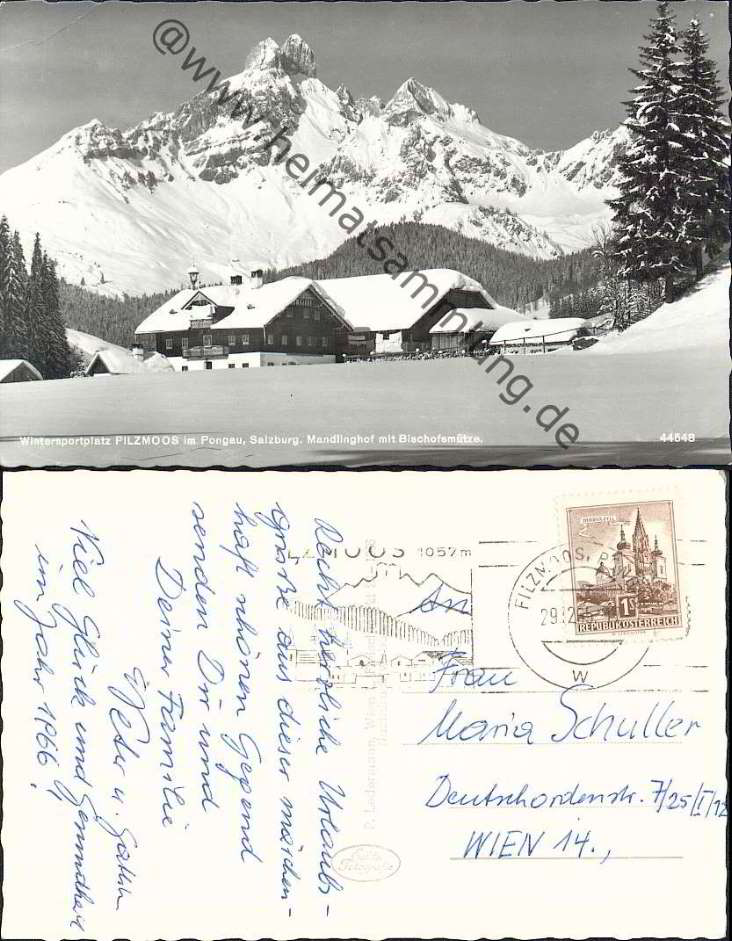 @www.heimatsammlung.de
Wintersportplatz FILZMOOS im Pongau, Salzburg. Mandlinghof mit Bischofsmütze. 44548
Recht herzliche Urlaubs-
grüße aus dieser märchen-
haft schönen Gegend
senden Dir und
Deiner Familie
Peter u. Gattin
Viel Glück und Gesundheit
im Jahr 1966!
1057m
FILZMOOS,
29.12.
W
MARIAZELL
1S
REPUBLIK ÖSTERREICH
An
Frau
Maria Schuller
Deutschordenstr. 7/25/I/12
WIEN 14.,
P. Ledermann, Wien
Echte
Fotografie